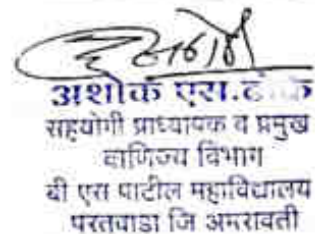 अशोक एस.
सहयोगी प्राध्यापक व प्रमुख
वाणिज्य विभाग
बी एस पाटील महाविद्यालय
परतवाडा जि अमरावती